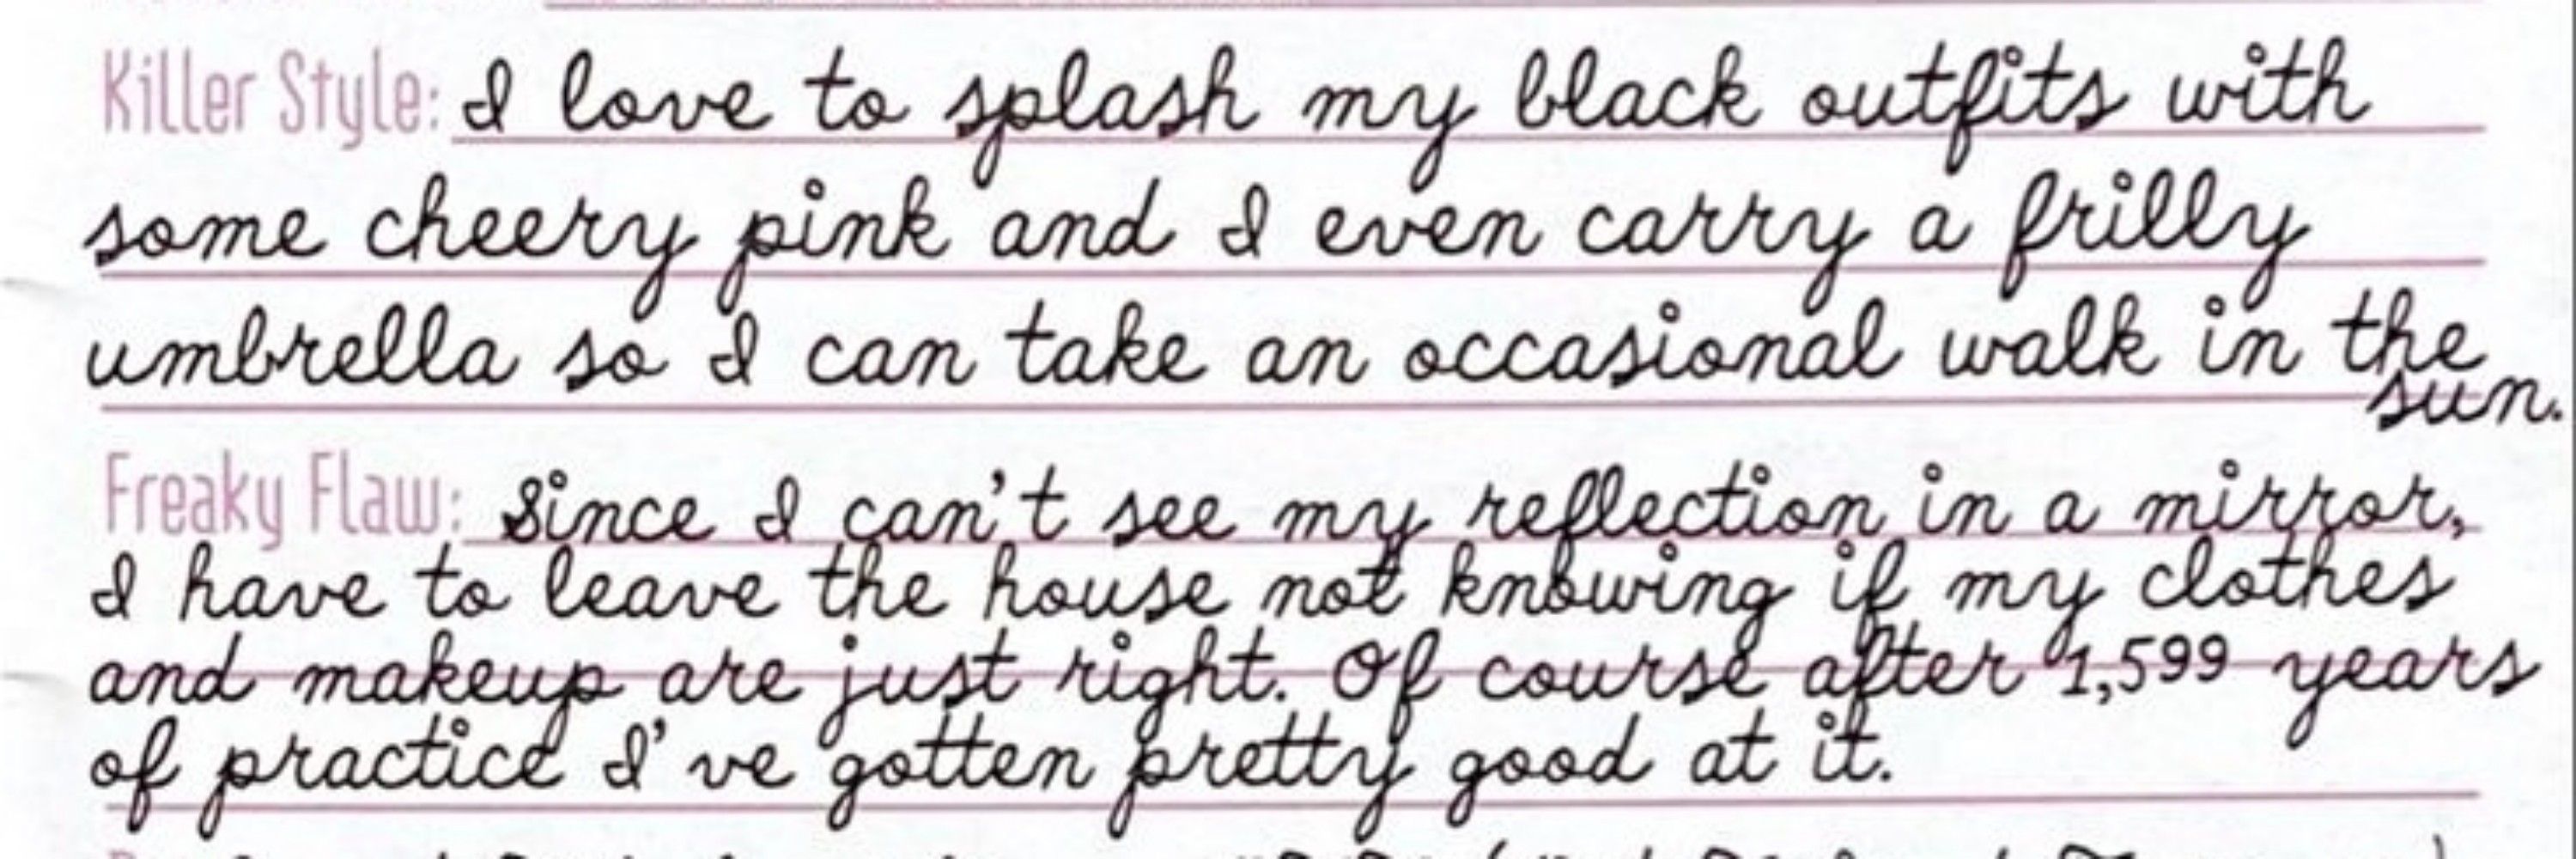 Killer Style: I love to splash my black outfits with
some cheery pink and I even carry a frilly
umbrella so I can take an occasional walk in the
sun.
Freaky Flaw: Since I can't see my reflection in a mirror,
I have to leave the house not knowing if my clothes
and makeup are just right. Of course after 1,599 years
of practice I've gotten pretty good at it.